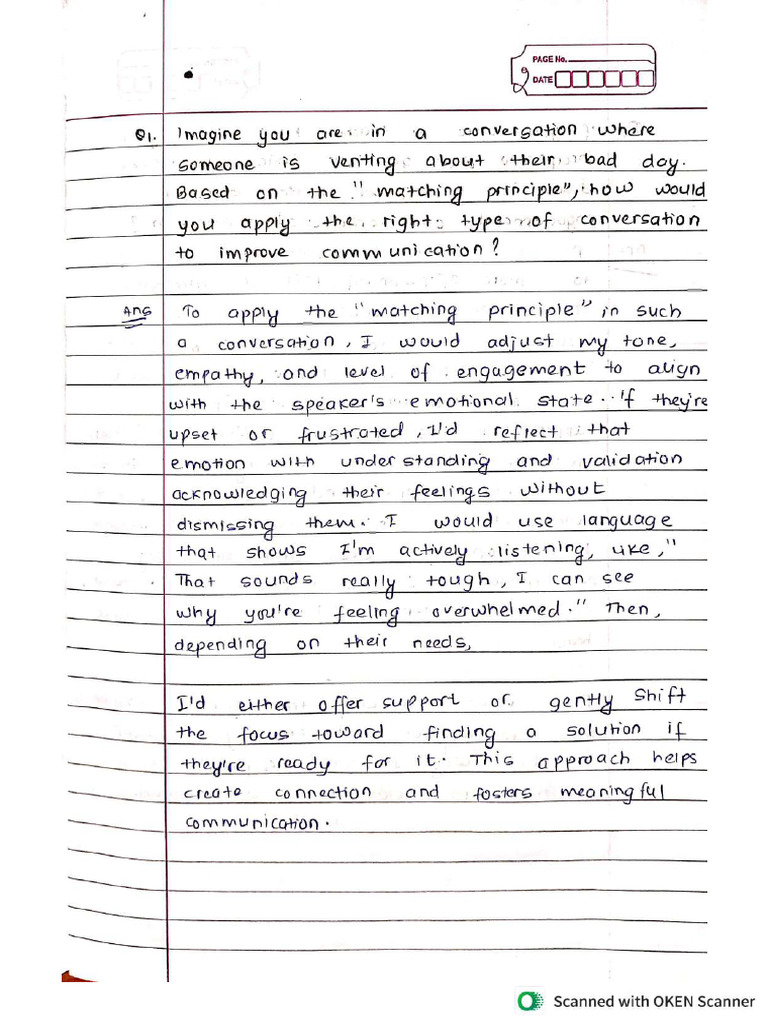 PAGE No.
DATE
Q1. Imagine you are in a conversation where
someone is venting about their bad day.
Based on the "matching principle", how would
you apply the right type of conversation
to improve communication?
Ans To apply the "matching principle" in such
a conversation, I would adjust my tone,
empathy, and level of engagement to align
with the speaker's emotional state. If they're
upset or frustrated, I'd reflect that
emotion with understanding and validation
acknowledging their feelings without
dismissing them. I would use language
that shows I'm actively listening, like, "
That sounds really tough, I can see
why you're feeling overwhelmed." Then,
depending on their needs,
I'd either offer support or gently shift
the focus toward finding a solution if
they're ready for it. This approach helps
create connection and fosters meaningful
communication.
Scanned with OKEN Scanner